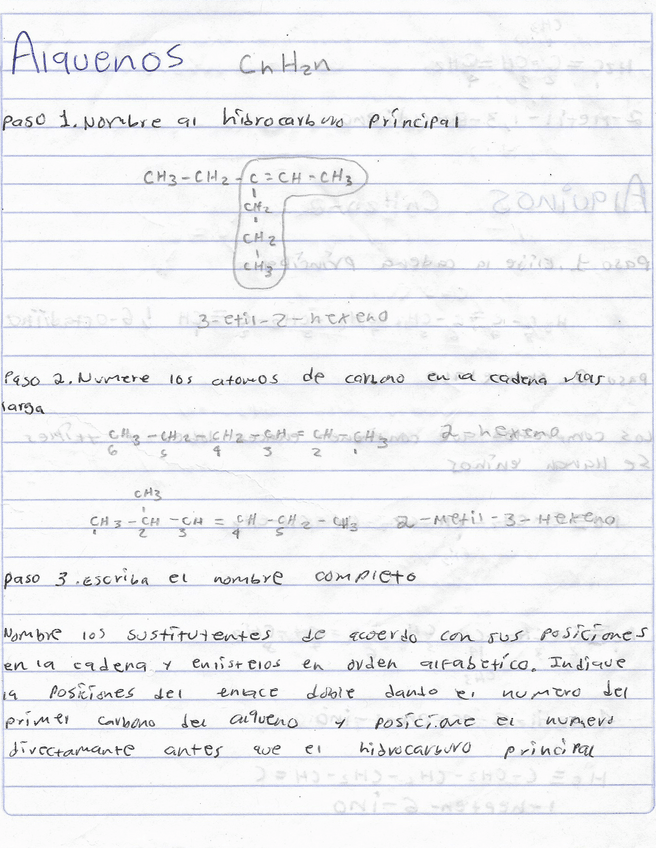 Alquenos CnH2n
Paso 1. Nombre al hidrocarburo principal
CH3-CH2-C=CH-CH3
CH2
CH2
CH3
3-etil-2-hexeno
Paso 2. Numere los atomos de carbono en la cadena mas
larga
CH3-CH2-CH2-CH=CH-CH3 2-hexeno
6 5 4 3 2 1
CH3
CH3-CH-CH=CH-CH2-CH3 2-Metil-3-Hexeno
1 2 3 4 5
Paso 3. escriba el nombre completo
Nombre los sustitutentes de acuerdo con sus posiciones
en la cadena y enlistelos en orden alfabetico. Indique
la posiciones del enlace doble dando el numero del
primer carbono del alqueno y posicione el numero
directamante antes que el hidrocarburo principal